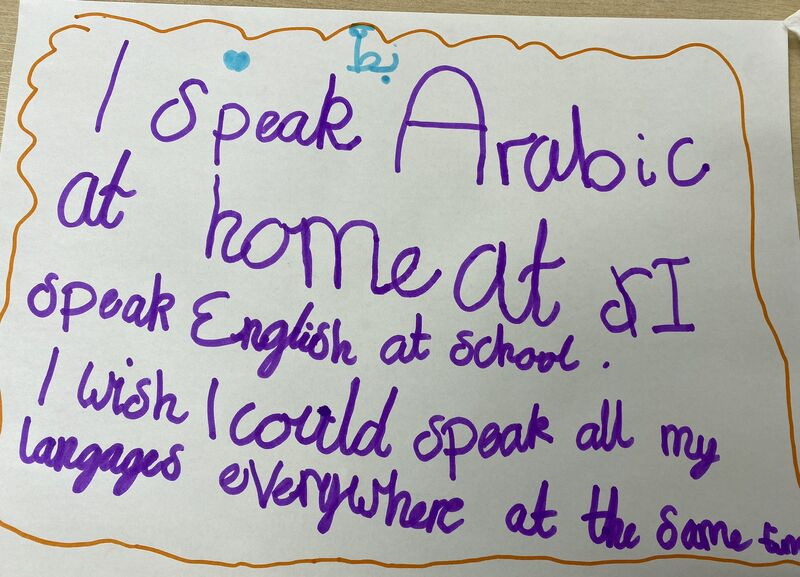 I speak Arabic
at home at s I
speak English at school.
I wish I could speak all my
langages everywhere at the same